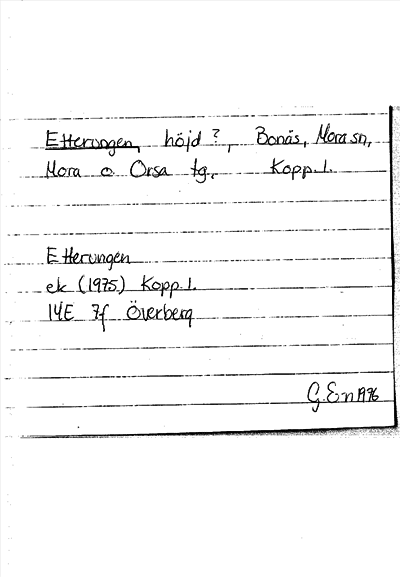 Etterungen, höjd?, Bonäs, Mora sn,
Mora o Orsa tg, Kopp. l.
Etterungen
ek (1975) Kopp. l.
14E 7f Överberg
G.En 1976